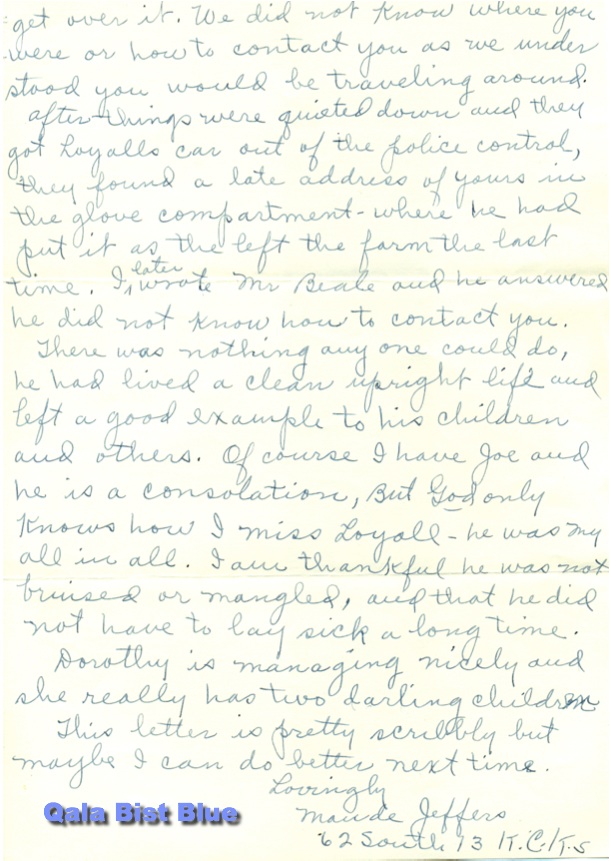 get over it. We did not know where you
were or how to contact you as we under
stood you would be traveling around.
after things were quieted down and they
got Loyalls car out of the police control,
they found a late address of yours in
the glove compartment - where he had
put it as the left the farm the last
time. I later wrote Mr Beale and he answered
he did not know how to contact you.
There was nothing any one could do,
he had lived a clean upright life and
left a good example to his children
and others. Of course I have Joe and
he is a consolation, But God only
knows how I miss Loyall - he was my
all in all. I am thankful he was not
bruised or mangled, and that he did
not have to lay sick a long time.
Dorothy is managing nicely and
she really has two darling children
This letter is pretty scribbly but
maybe I can do better next time.
Lovingly
Maude Jeffers
62 South 13 K.C.K.s
Qala Bist Blue